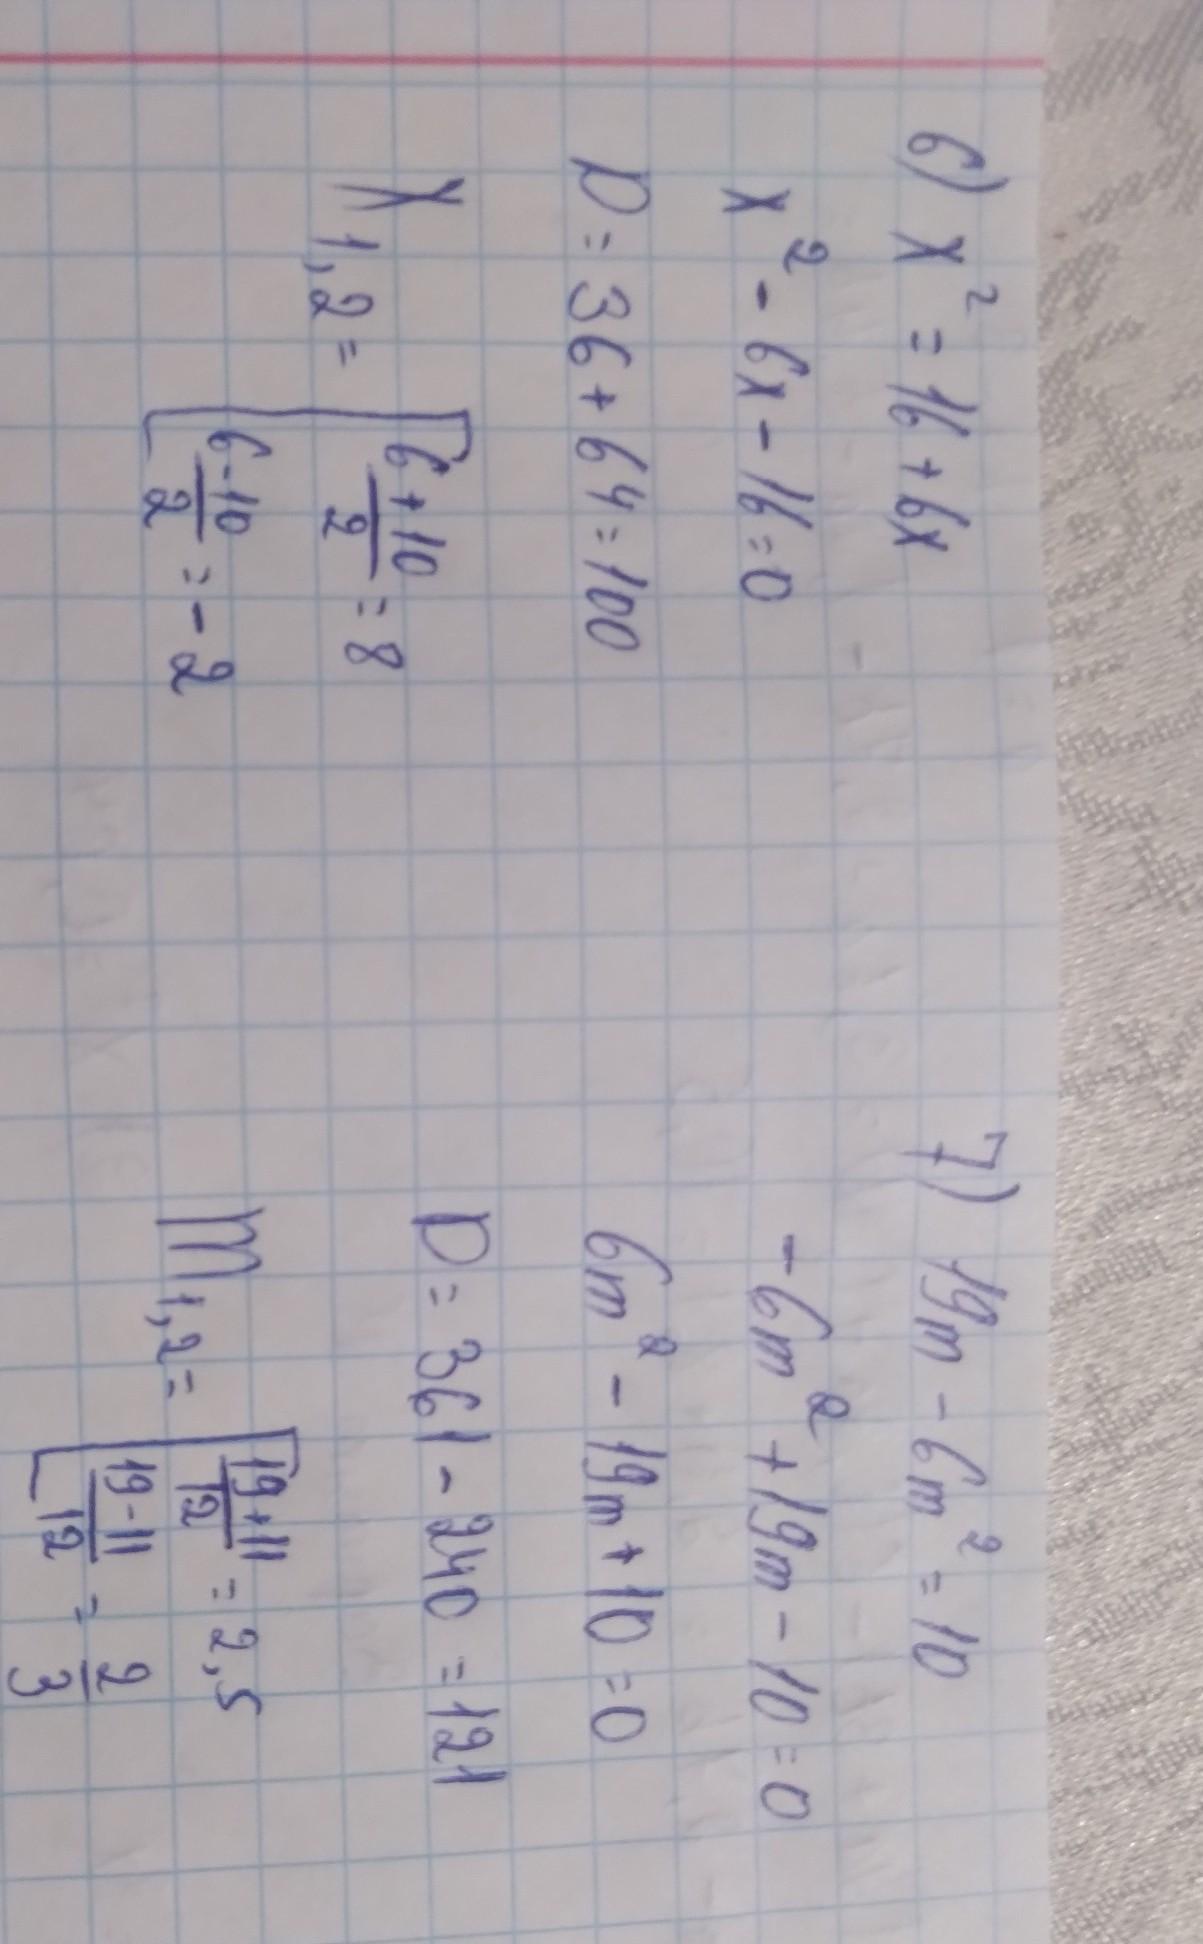 6) x² = 16 + 6x
x² - 6x - 16 = 0
D = 36 + 64 = 100
x 1,2 =
[ 6 + 10 / 2 = 8
6 - 10 / 2 = - 2
7) 19m - 6m² = 10
- 6m² + 19m - 10 = 0
6m² - 19m + 10 = 0
D = 361 - 240 = 121
m 1,2 =
[ 19 + 11 / 12 = 2,5
19 - 11 / 12 = 2 / 3